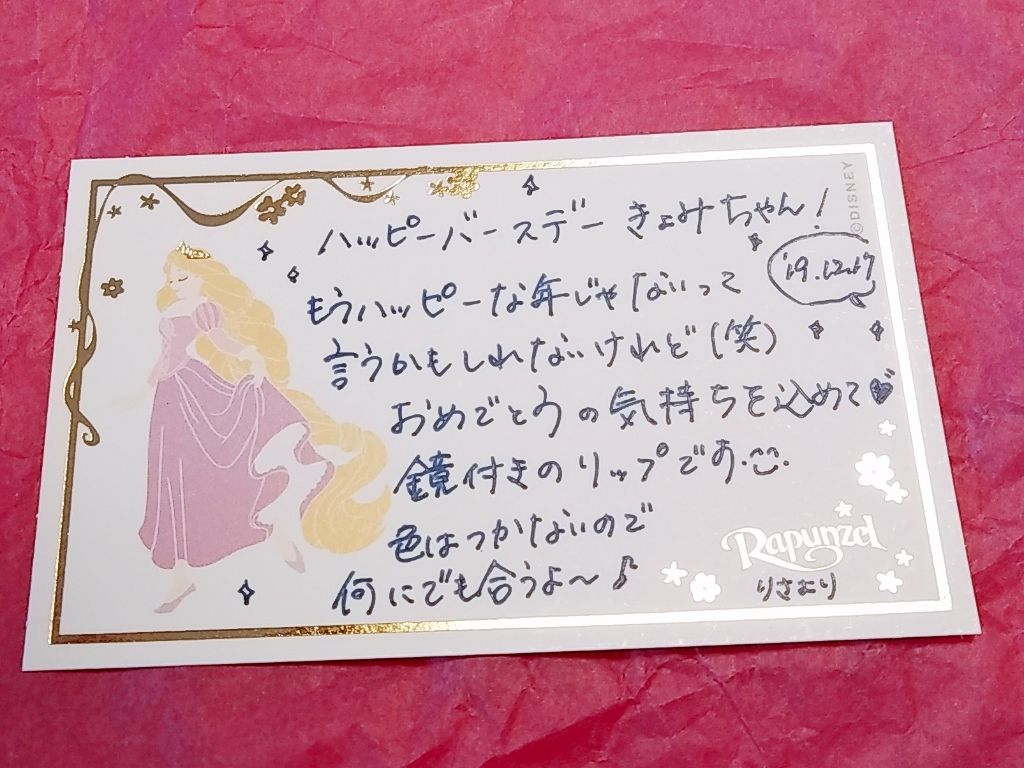 ハッピーバースデー きよみちゃん!
'19.12.17
もうハッピーな年じゃないって
言うかもしれないけれど(笑)
おめでとうの気持ちを込めて♥
鏡付きのリップです
色はつかないので
何にでも合うよ〜♪
©DISNEY
Rapunzel
りさより